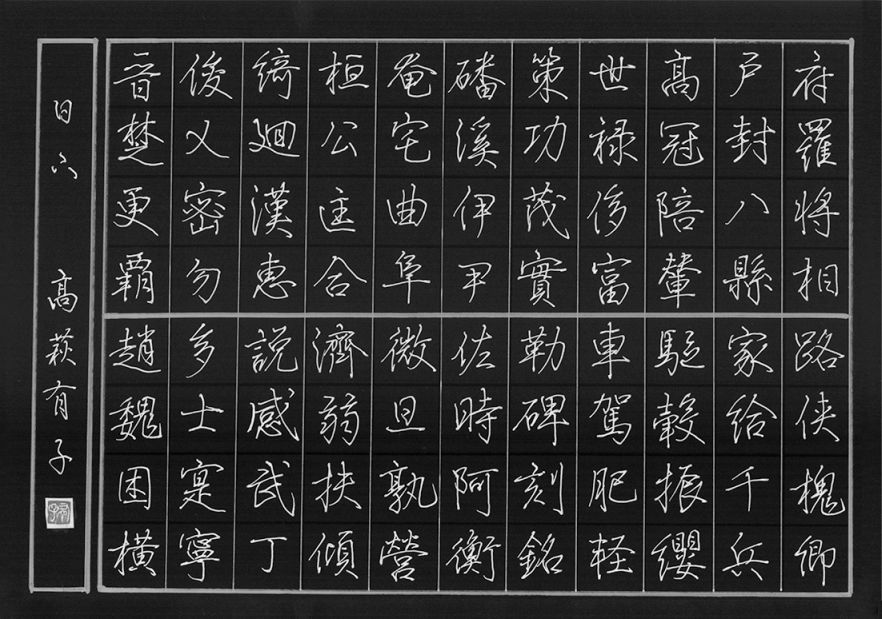 府羅将相路侠槐卿
戸封八縣家給千兵
髙冠陪輦駈轂振纓
世禄侈富車駕肥軽
策功茂實勒碑刻銘
磻溪伊尹佐時阿衡
奄宅曲阜微旦孰營
桓公匡合濟弱扶傾
綺廻漢恵説感武丁
俊乂密勿多士寔寧
晉楚更覇趙魏困横
日六 髙萩有子